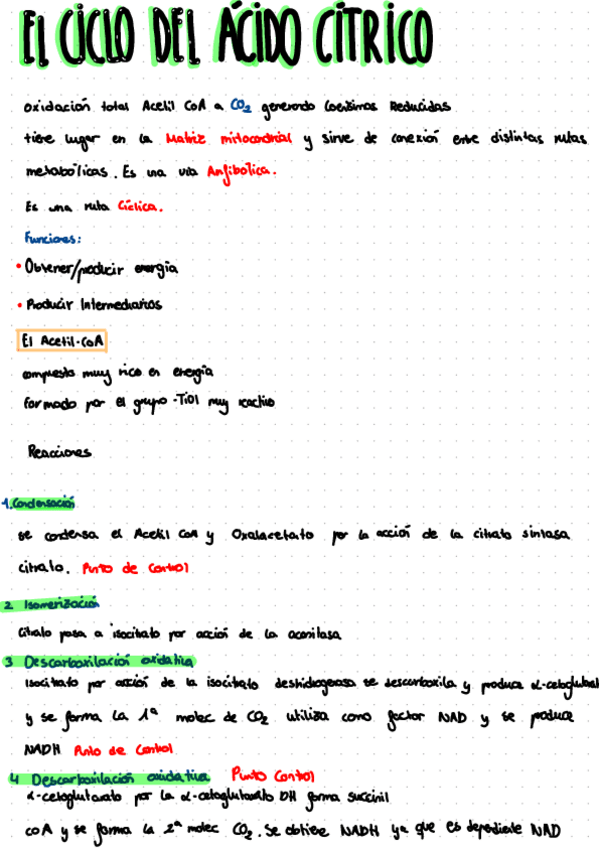 EL CICLO DEL ÁCIDO CÍTRICO
oxidación total Acetil CoA a CO2 generando Coenzimas Reducidas
tiene lugar en la Matriz mitocondrial y sirve de conexión entre distintas rutas
metabólicas. Es una vía Anfibólica.
Es una ruta Cíclica.
Funciones:
• Obtener/producir energía
• Producir Intermediarios
El Acetil-CoA
compuesto muy rico en energía
formado por el grupo -Tiol muy reactivo
Reacciones
1. Condensación
se condensa el Acetil CoA y Oxalacetato por la acción de la citrato sintasa
citrato. Punto de Control
2 Isomerización
Citrato pasa a isocitrato por acción de la aconitasa
3 Descarboxilación oxidativa
Isocitrato por acción de la isocitrato deshidrogenasa se descarboxila y produce α-cetoglutarato
y se forma la 1ª molec de CO2 utiliza como factor NAD y se produce
NADH Punto de Control
4 Descarboxilación oxidativa Punto Control
α-cetoglutarato por la α-cetoglutarato DH forma succinil
coA y se forma la 2ª molec CO2. Se obtiene NADH ya que es dependiente NAD